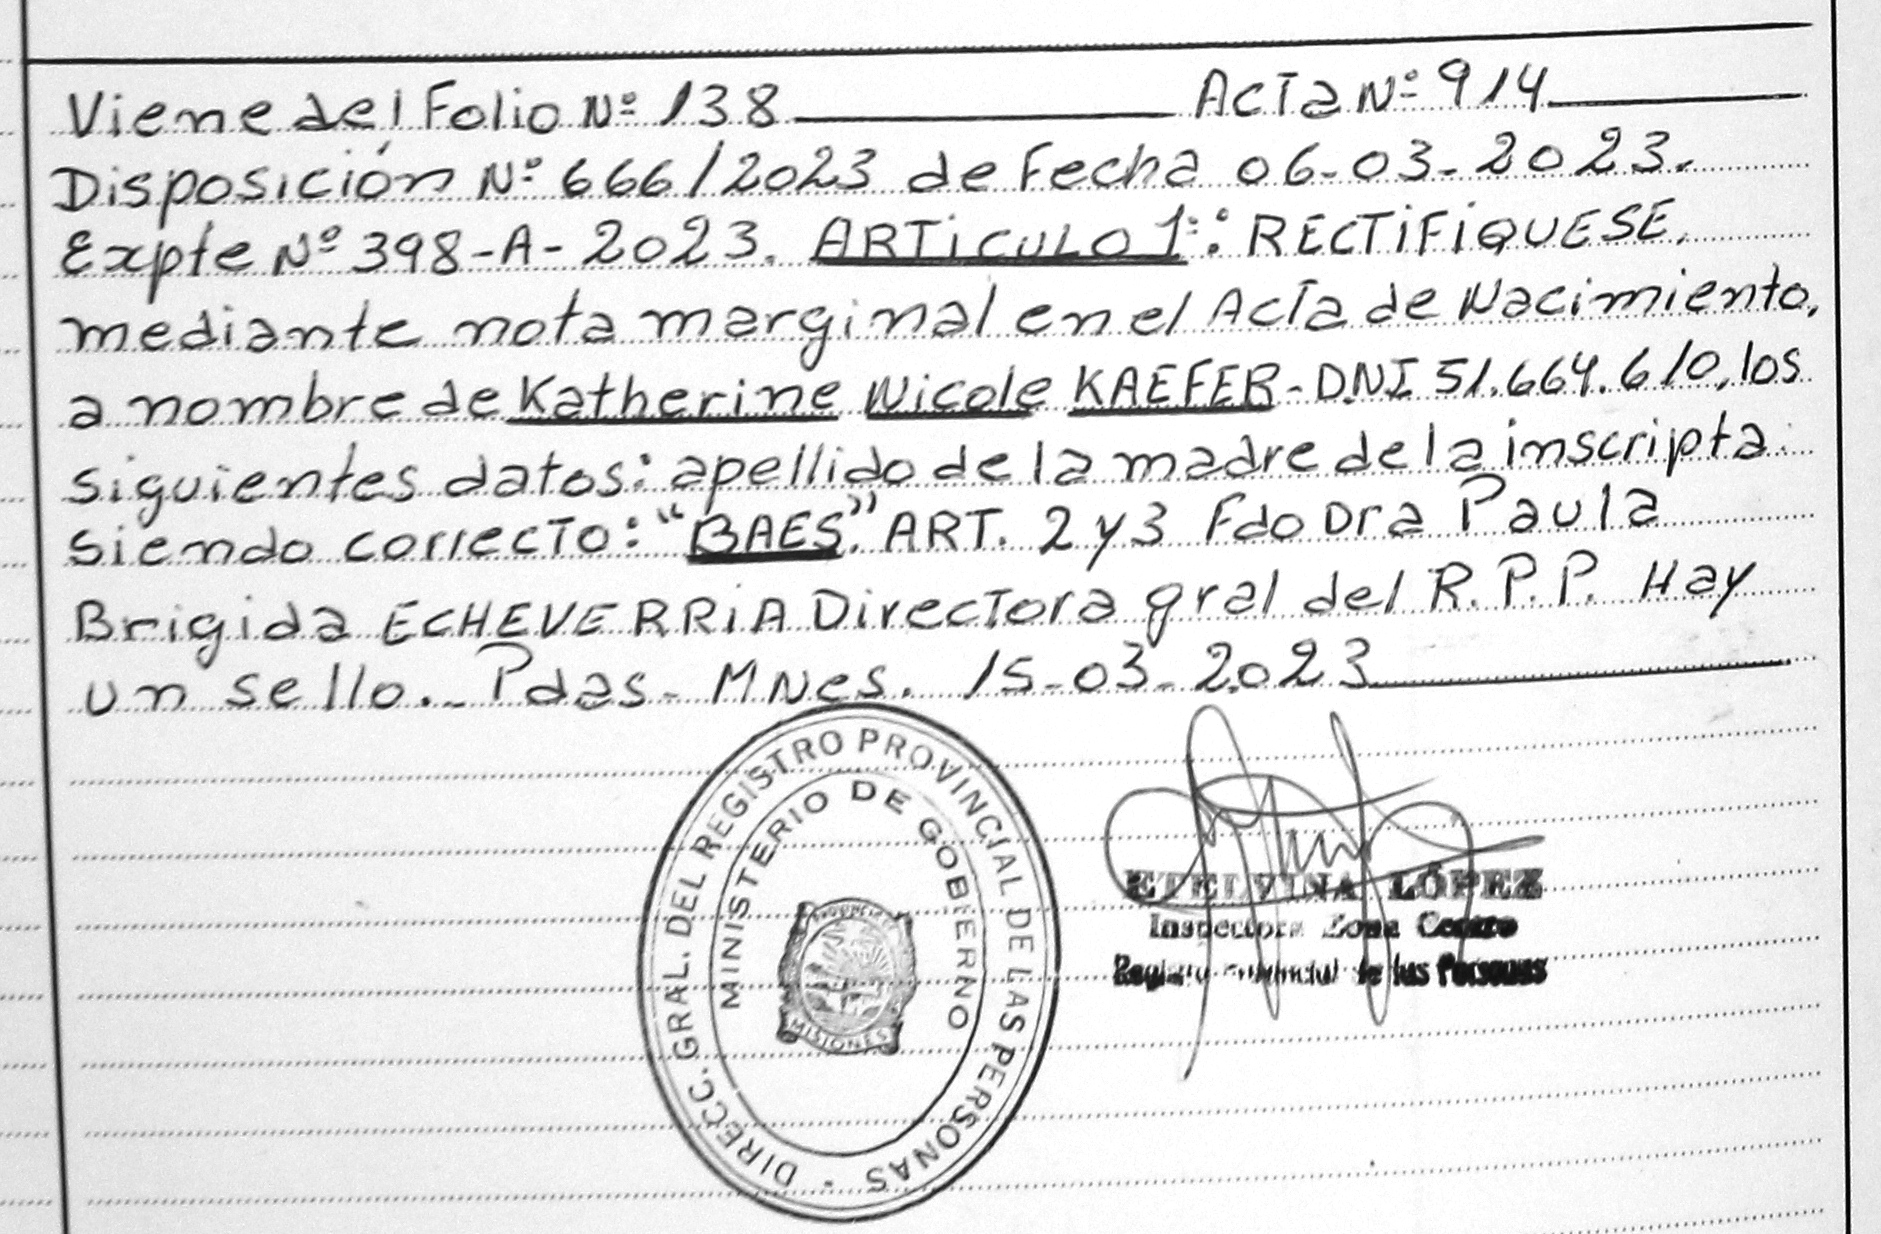 Viene del Folio Nº 138 Acta Nº 914
Disposición Nº 666/2023 de Fecha 06-03-2023.
Expte Nº 398-A-2023. ARTiCULO 1º: RECTiFiQUESE.
mediante nota marginal en el Acta de Nacimiento,
a nombre de Katherine Nicole KAEFER-DNI 51.664.610, los
siguientes datos: apellido de la madre de la inscripta.
siendo correcto: "BAES". ART. 2 y 3 Fdo Dra Paula
Brigida ECHEVERRiA Directora gral del R.P.P. Hay
un sello._ Pdas- MNes. 15-03-2023
DIRECC. GRAL. DEL REGISTRO PROVINCIAL DE LAS PERSONAS -
MINISTERIO DE GOBIERNO
PROVINCIA
MISIONES
ETELVINA LÓPEZ
Inspectora Zona Centro
Registro Provincial de las Personas